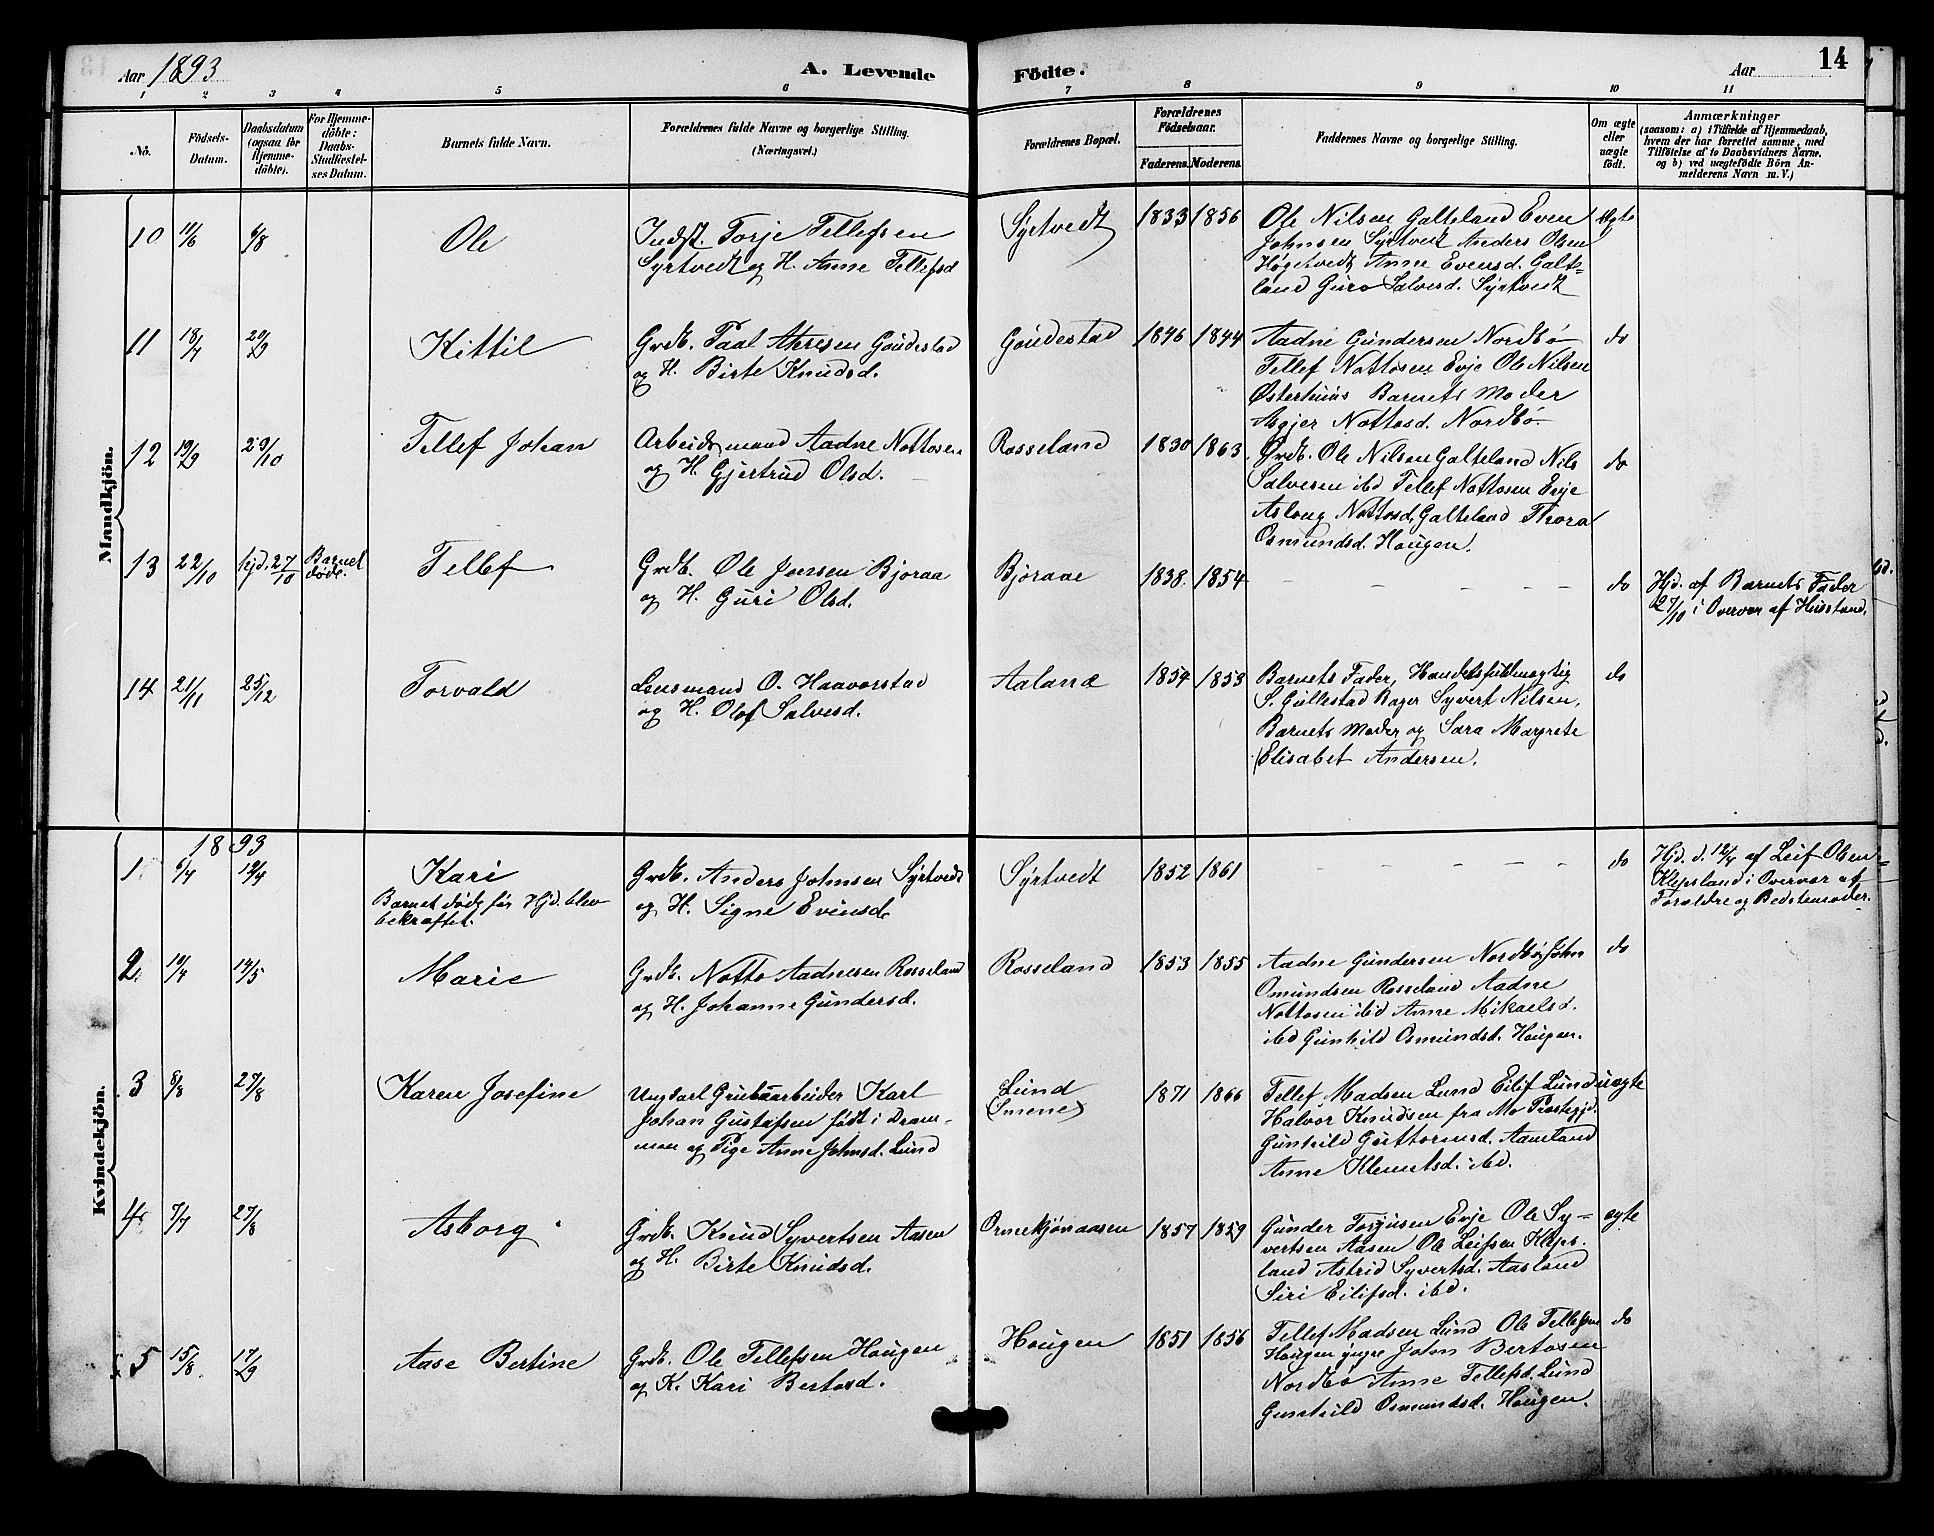 Aar 1893
A. Levende
Födte.
Aar
14
1 2 3 4 5 6 7 8 9 10 11
No.
Födsels-
Datum.
Daabsdatum
(ogsaa for
Hjemme-
döbte).
For Hjemme-
döbte:
Daabs-
Stadfæstel-
ses Datum.
Barnets fulde Navn.
Forældrenes fulde Navne og borgerlige Stilling.
(Næringsvei.)
Forældrenes Bopæl.
Forældrenes
Födselsaar.
Faderens. Moderens.
Faddernes Navne og borgerlige Stilling.
Om ægte
eller
uægte
födt.
Anmærkninger
(saasom: a) i Tilfælde af Hjemmedaab,
hvem der har forrettet samme, med
Tilföielse af to Daabsvidners Navne,
og b) ved uægtefödte Börn An-
melderens Navn m. V.)
Mandkjön.
10 11/6 6/8
Ole
Indst. Torje Tellefsen
Syrtvedt og H. Anne Tellefsd
Syrtvedt
1833 1856
Ole Nilsen Galteland Even
Johnsen Syrtvedt Anders Olsen
Høgetvedt Anne Evensd. Galte-
land Guro Salvesd. Syrtvedt
Ægte
11 18/7 20/9
Kittil
Grdb. Paal Aanesen Goudestad
og H. Birte Knudsd.
Goudestad
1846 1844
Aadne Gundersen Nordbö
Tellef Nottosen Evje Ole Nilsen
Østerhuus Barnets Moder
Asgjer Nottosd. Nordbö
do
12 19/9 29/10
Tellef Johan
Arbeidsmand Aadne Nottosen
og H. Gjertrud Olsd.
Rosseland
1830 1863
Grdb. Ole Nilsen Galteland Nils
Salvesen ibd Tellef Nottosen Evje
Aslaug Nottosd. Galteland Thora
Osmundsd. Hougen.
do
13 22/10 hjd. 27/10
Barnet
døde.
Tellef
Grdb. Ole Jensen Bjoraa
og H. Guri Olsd.
Bjoraae
1838 1854
do
Hjd. af Barnets Fader
27/10 i Overvær af Husstand.
14 21/11 25/12
Torvald
Lensmand O. Haavorstad
og H. Olof Salvesd.
Aaland
1854 1853
Barnets Fader, Handelsfuldmægtig
S. Gullestad Bager Syvert Nilsen,
Barnets Moder og Sara Margrete
Elisabet Andersen.
do
Kvindekjön.
1893
1 6/4 12/4
Kari
Barnet døde før Hjd. blev
bekræftet.
Grdb. Anders Johnsen Syrtvedt
og H. Signe Evensd.
Syrtvedt
1852 1861
do
Hjd. d. 12/4 af Leif Olsen
Klepsland i Overvær af
Forældre og Bedstemoder.
2 19/4 14/5
Marie
Grdb. Notto Aadnesen Rosseland
og H. Johanne Gundersd.
Rosseland
1853 1855
Aadne Gundersen Nordbö, John
Osmundsen Rosseland Aadne
Nottosen ibd Anne Mikaelsd.
ibd Gunhild Osmundsd. Hougen.
do
3 8/8 27/8
Karen Josefine
Ungkarl Grubearbeider Karl
Johan Gustafsen født i Dram-
men og Pige Anne Johnsd. Lund
Lund
(Smene)
1871 1866
Tellef Madsen Lund Eilif Lund
Halvor Knudsen fra Mo Præstegjd.
Gunhild Guttormsd. Aamland
Anne Klemetsd. ibd.
uægte
4 7/7 27/8
Asborg
Grdb. Knud Syvertsen Aasen
og H. Birte Knudsd.
Ormekjønaasen
1857 1859
Gunder Torjusen Evje Ole Sy-
vertsen Aasen Ole Leifsen Kleps-
land Astrid Syvertsd. Aasland
Siri Eilifsd. ibd.
ægte
5 15/8 17/9
Aase Bertine
Grdb. Ole Tellefsen Hougen
og K. Kari Bertosd.
Hougen
1851 1856
Tellef Madsen Lund Ole Tellefsen
Hougen yngre John Bertosen
Nordbö Anne Tellefsd. Lund
Gunhild Osmundsd. Hougen.
do